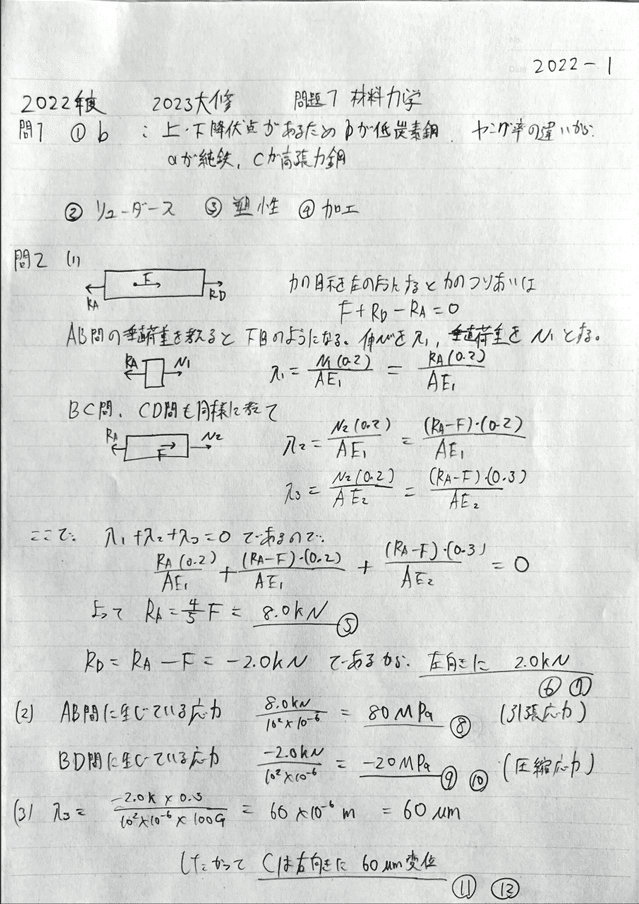 2022-1
2022年度 2023大修 問題7 材料力学
問1 ① b : 上・下降伏点があるためbが低炭素鋼. ヤング率の違いから.
aが純鉄, cが高張力鋼
② リューダース ③ 塑性 ④ 加工
問2 (1)
RA F RD
力の向きを左のようにすると力のつりあいは
F+RD-RA=0
AB間の垂直荷重を考えると下図のようになる。伸びをλ1, 垂直荷重をN1とする。
RA N1 λ1 = N1(0.2)/AE1 = RA(0.2)/AE1
BC間, CD間も同様に考えて
RA F N2 λ2 = N2(0.2)/AE1 = (RA-F)・(0.2)/AE1
λ3 = N2(0.2)/AE2 = (RA-F)・(0.3)/AE2
ここで. λ1+λ2+λ3=0 であるので.
RA(0.2)/AE1 + (RA-F)・(0.2)/AE1 + (RA-F)・(0.3)/AE2 = 0
よって RA = 4/5 F = 8.0kN ⑤
RD = RA - F = -2.0kN であるから. 左向きに 2.0kN
⑥ ⑦
(2) AB間に生じている応力 8.0kN/10²×10⁻⁶ = 80MPa ⑧ (引張応力)
BD間に生じている応力 -2.0kN/10²×10⁻⁶ = -20MPa ⑨ ⑩ (圧縮応力)
(3) λ3 = -2.0k×0.3/10²×10⁻⁶×100G = 60×10⁻⁶m = 60μm
したがって Cは右向きに 60μm変位
⑪ ⑫